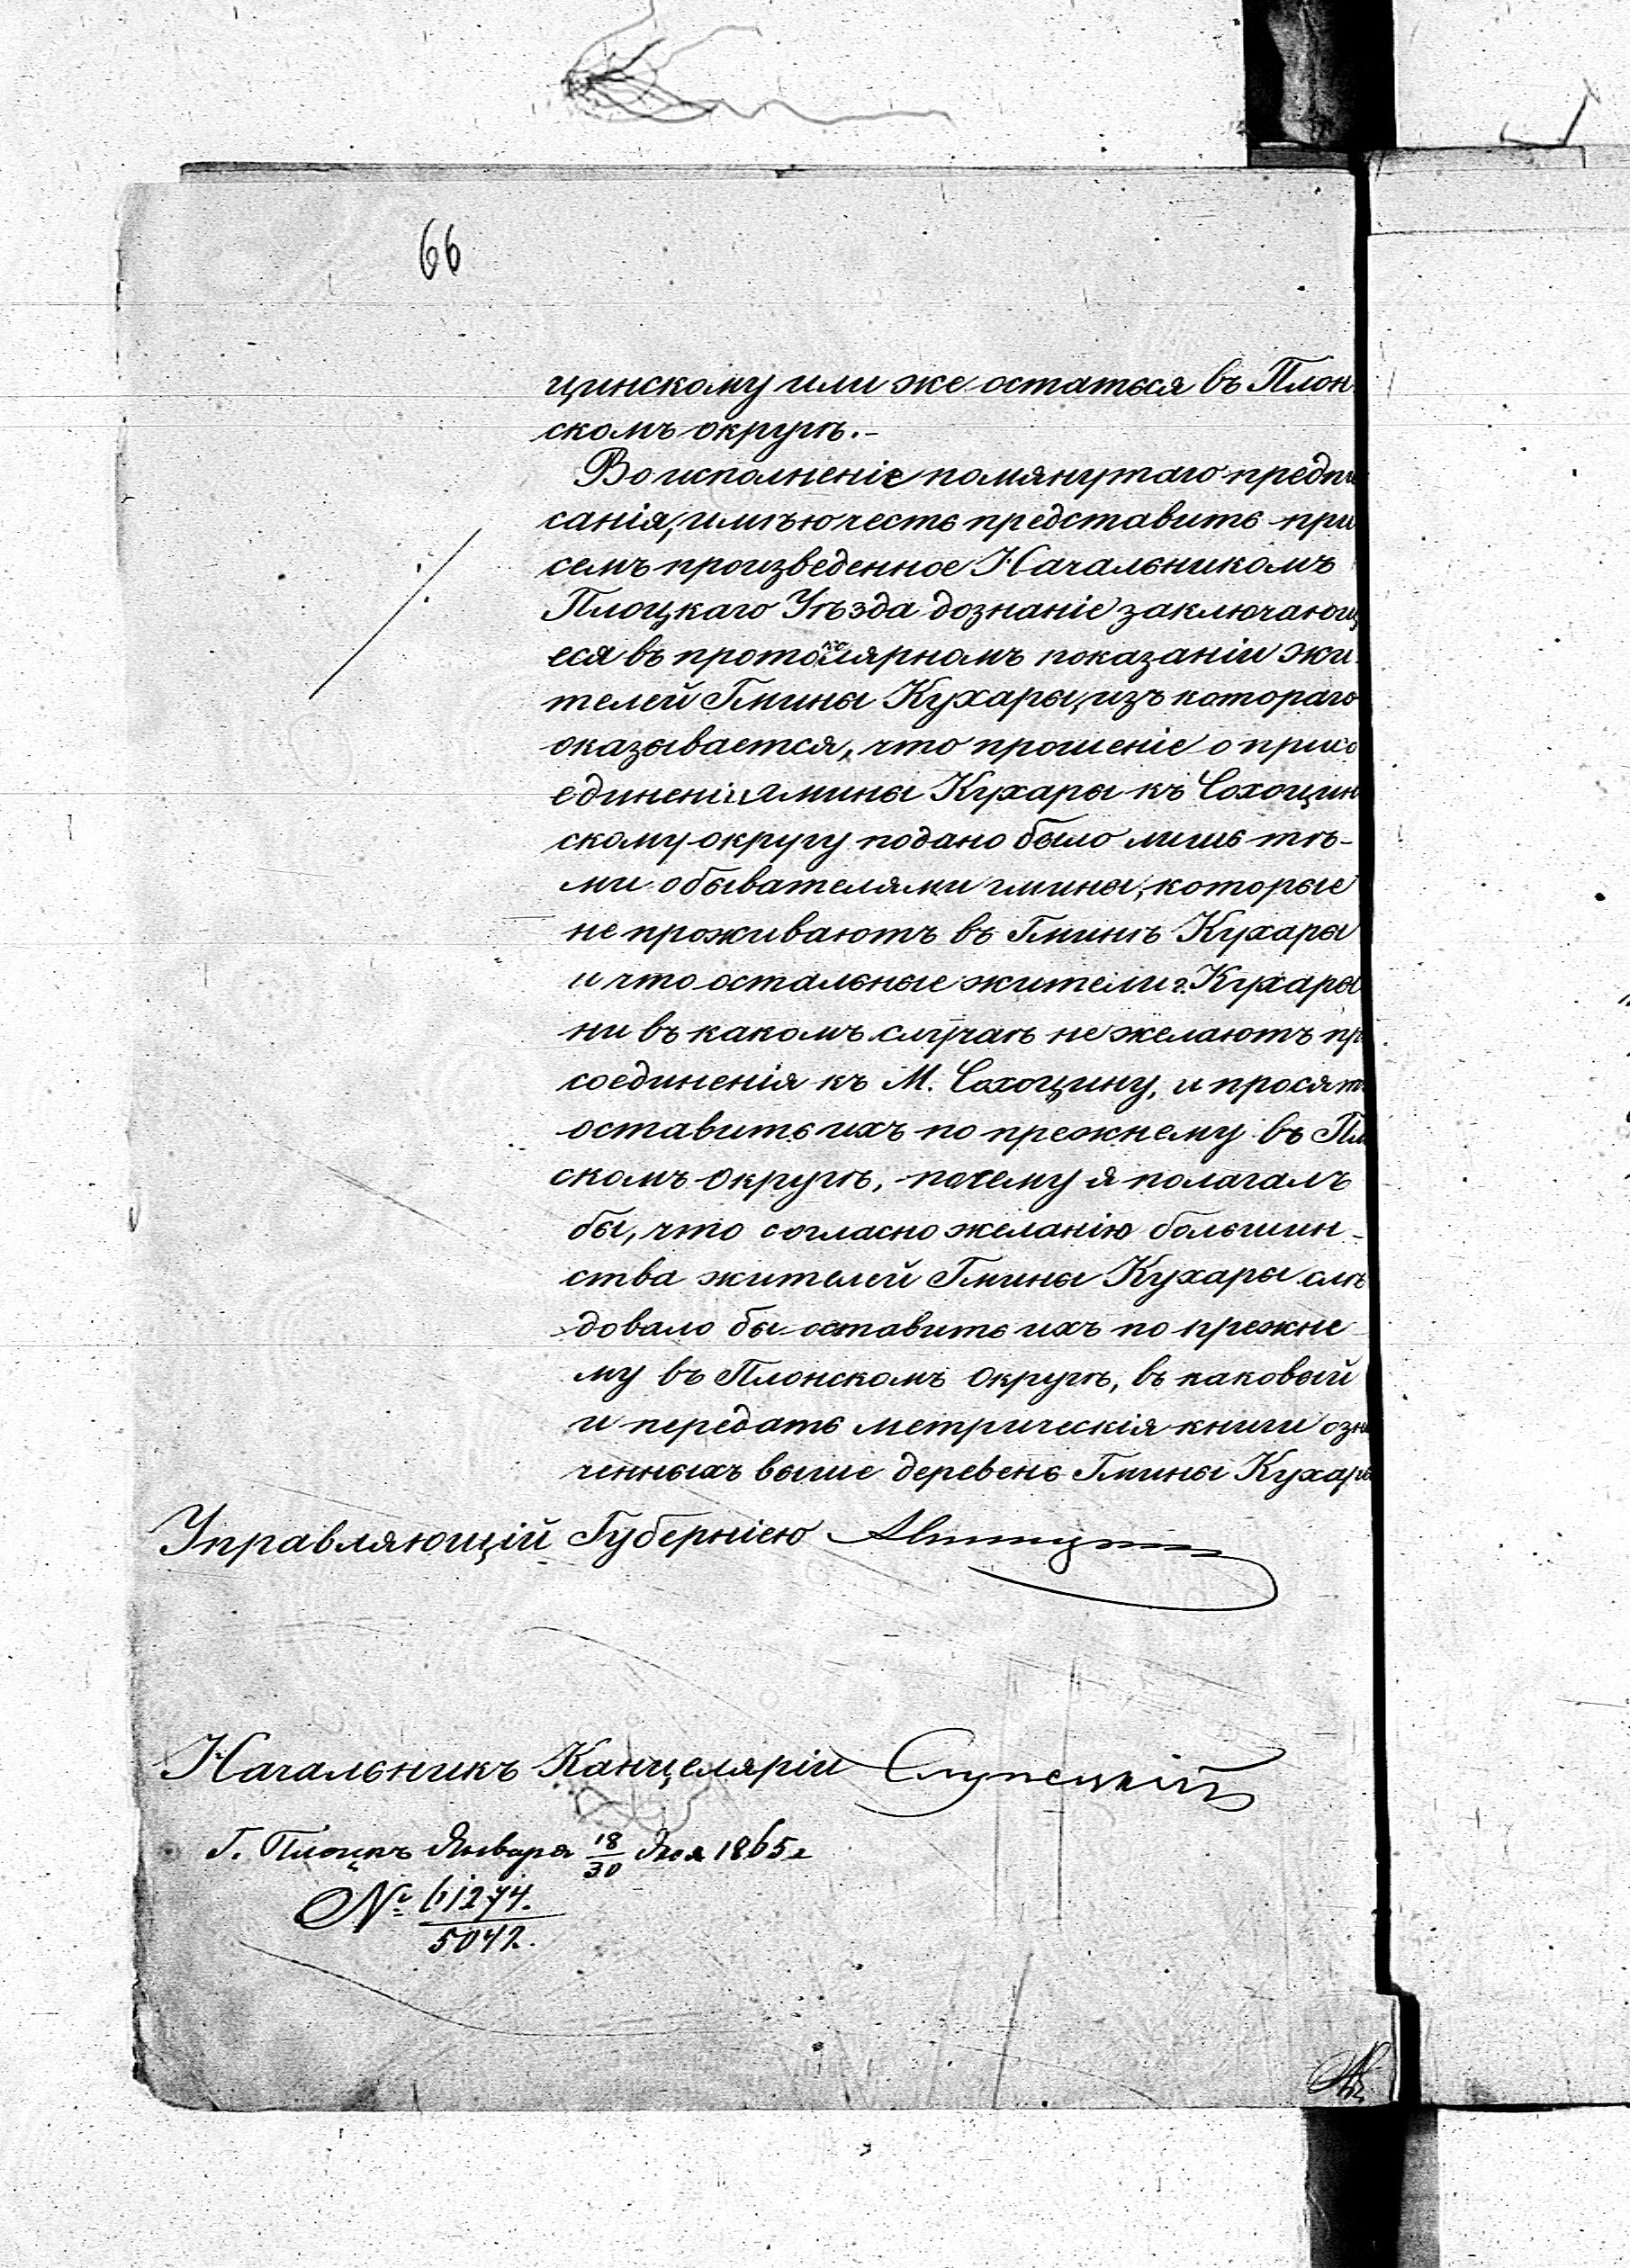 66
цинскому или же остаться въ Плон
скомъ округѣ.-
Во исполненіе помянутаго предпи
санія, имѣю честь представить при
семъ произведенное Начальникомъ
Плоцкаго Уѣзда дознаніе заключающ
еся въ протоколярномъ показаніи жи
телей Гмины Кухары, изъ котораго
оказывается, что прошеніе о присо
единеніи гмины Кухары къ Сохоцин
скому округу подано было лишь тѣ-
ми обывателями гмины, которые
не проживаютъ въ Гминѣ Кухары
и что остальные жители г. Кухары
ни въ какомъ случаѣ не желаютъ пр
соединенія къ М. Сохоцину, и просятъ
оставить ихъ по прежнему въ Пл
скомъ округѣ, почему я полагалъ
бы, что согласно желанію большин-
ства жителей Гмины Кухары слѣ
довало бы оставить ихъ по прежне
му въ Плонскомъ округѣ, въ каковый
и передать метрическія книги озн
ченныхъ выше деревень Гмины Кухары
Управляющій Губерніею
Начальникъ Канцеляріи Слупецкій
Г. Плоцкъ Января 18/30 дня 1865 г
№ 61274.
5042.